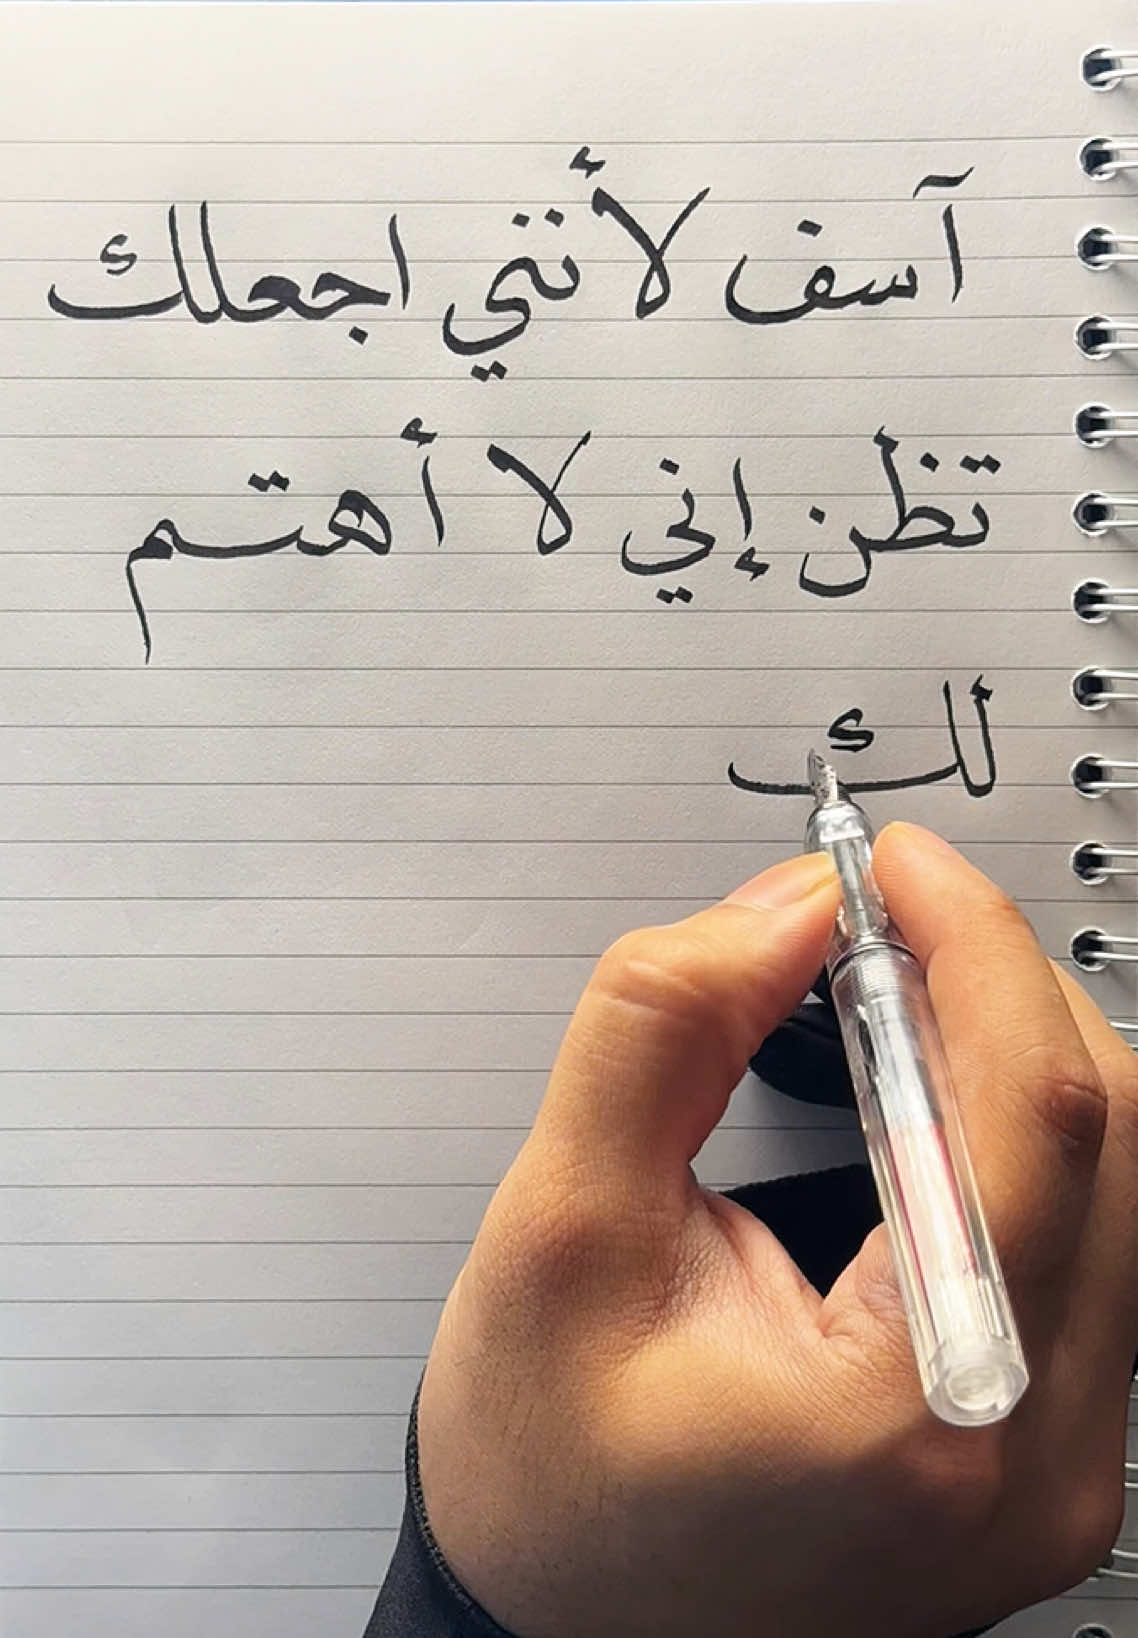 آسف لأنني اجعلك
تظن إني لا أهتم
لك